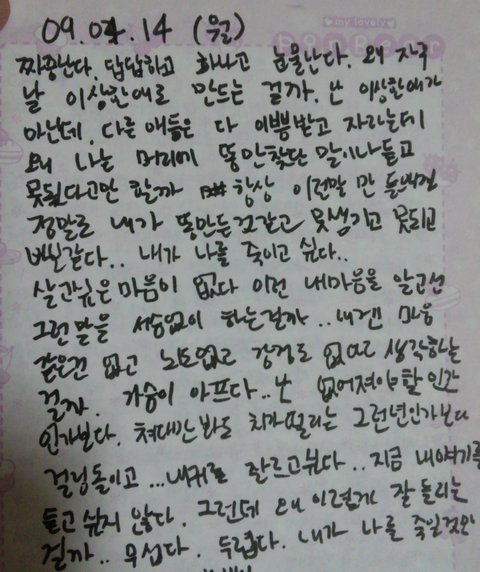 my lovely
09.04.14 (월)
짜증난다. 답답하고 화나고 눈물난다. 왜 자꾸
날 이상한애로 만드는 걸까. 난 이상한애가
아닌데. 다른 애들은 다 이쁨받고 자라는데
왜 나는 머리에 똥만찼단 말이나듣고
못됬다고만 할까 항상 이런말만 들으니
정말로 내가 똥만든것같고 못생기고 못되고
병신같다.. 내가 나를 죽이고 싶다..
살고싶은마음이 없다 이런 내마음을 알고선
그런말을 서슴없이 하는걸까.. 내겐 마음
같은건 없고 뇌도없고 감정도 없다고 생각하는
걸까. 가슴이 아프다.. 난 없어져야할 인간
인가보다. 쳐다만봐도 치가떨리는 그런년인가보다
걸림돌이고... 내귀를 잘르고싶다.. 지금 내얘기를
듣고 싶지 않다. 그런데 왜 이렇게 잘 들리는
걸까.. 무섭다. 두렵다. 내가 나를 죽일것만